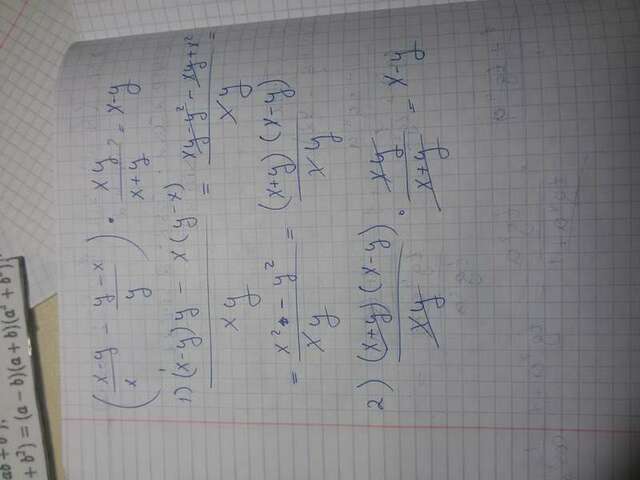 ab + b²);
+ b²) = (a − b)(a + b)(a² + b²);
((x-y)/x - (y-x)/y) · xy/(x+y) = x-y
1) ((x-y)y - x(y-x))/(xy) = (xy-y²-xy+x²)/(xy) =
= (x² - y²)/(xy) = ((x+y)(x-y))/(xy)
2) ((x+y)(x-y))/(xy) · xy/(x+y) = x-y